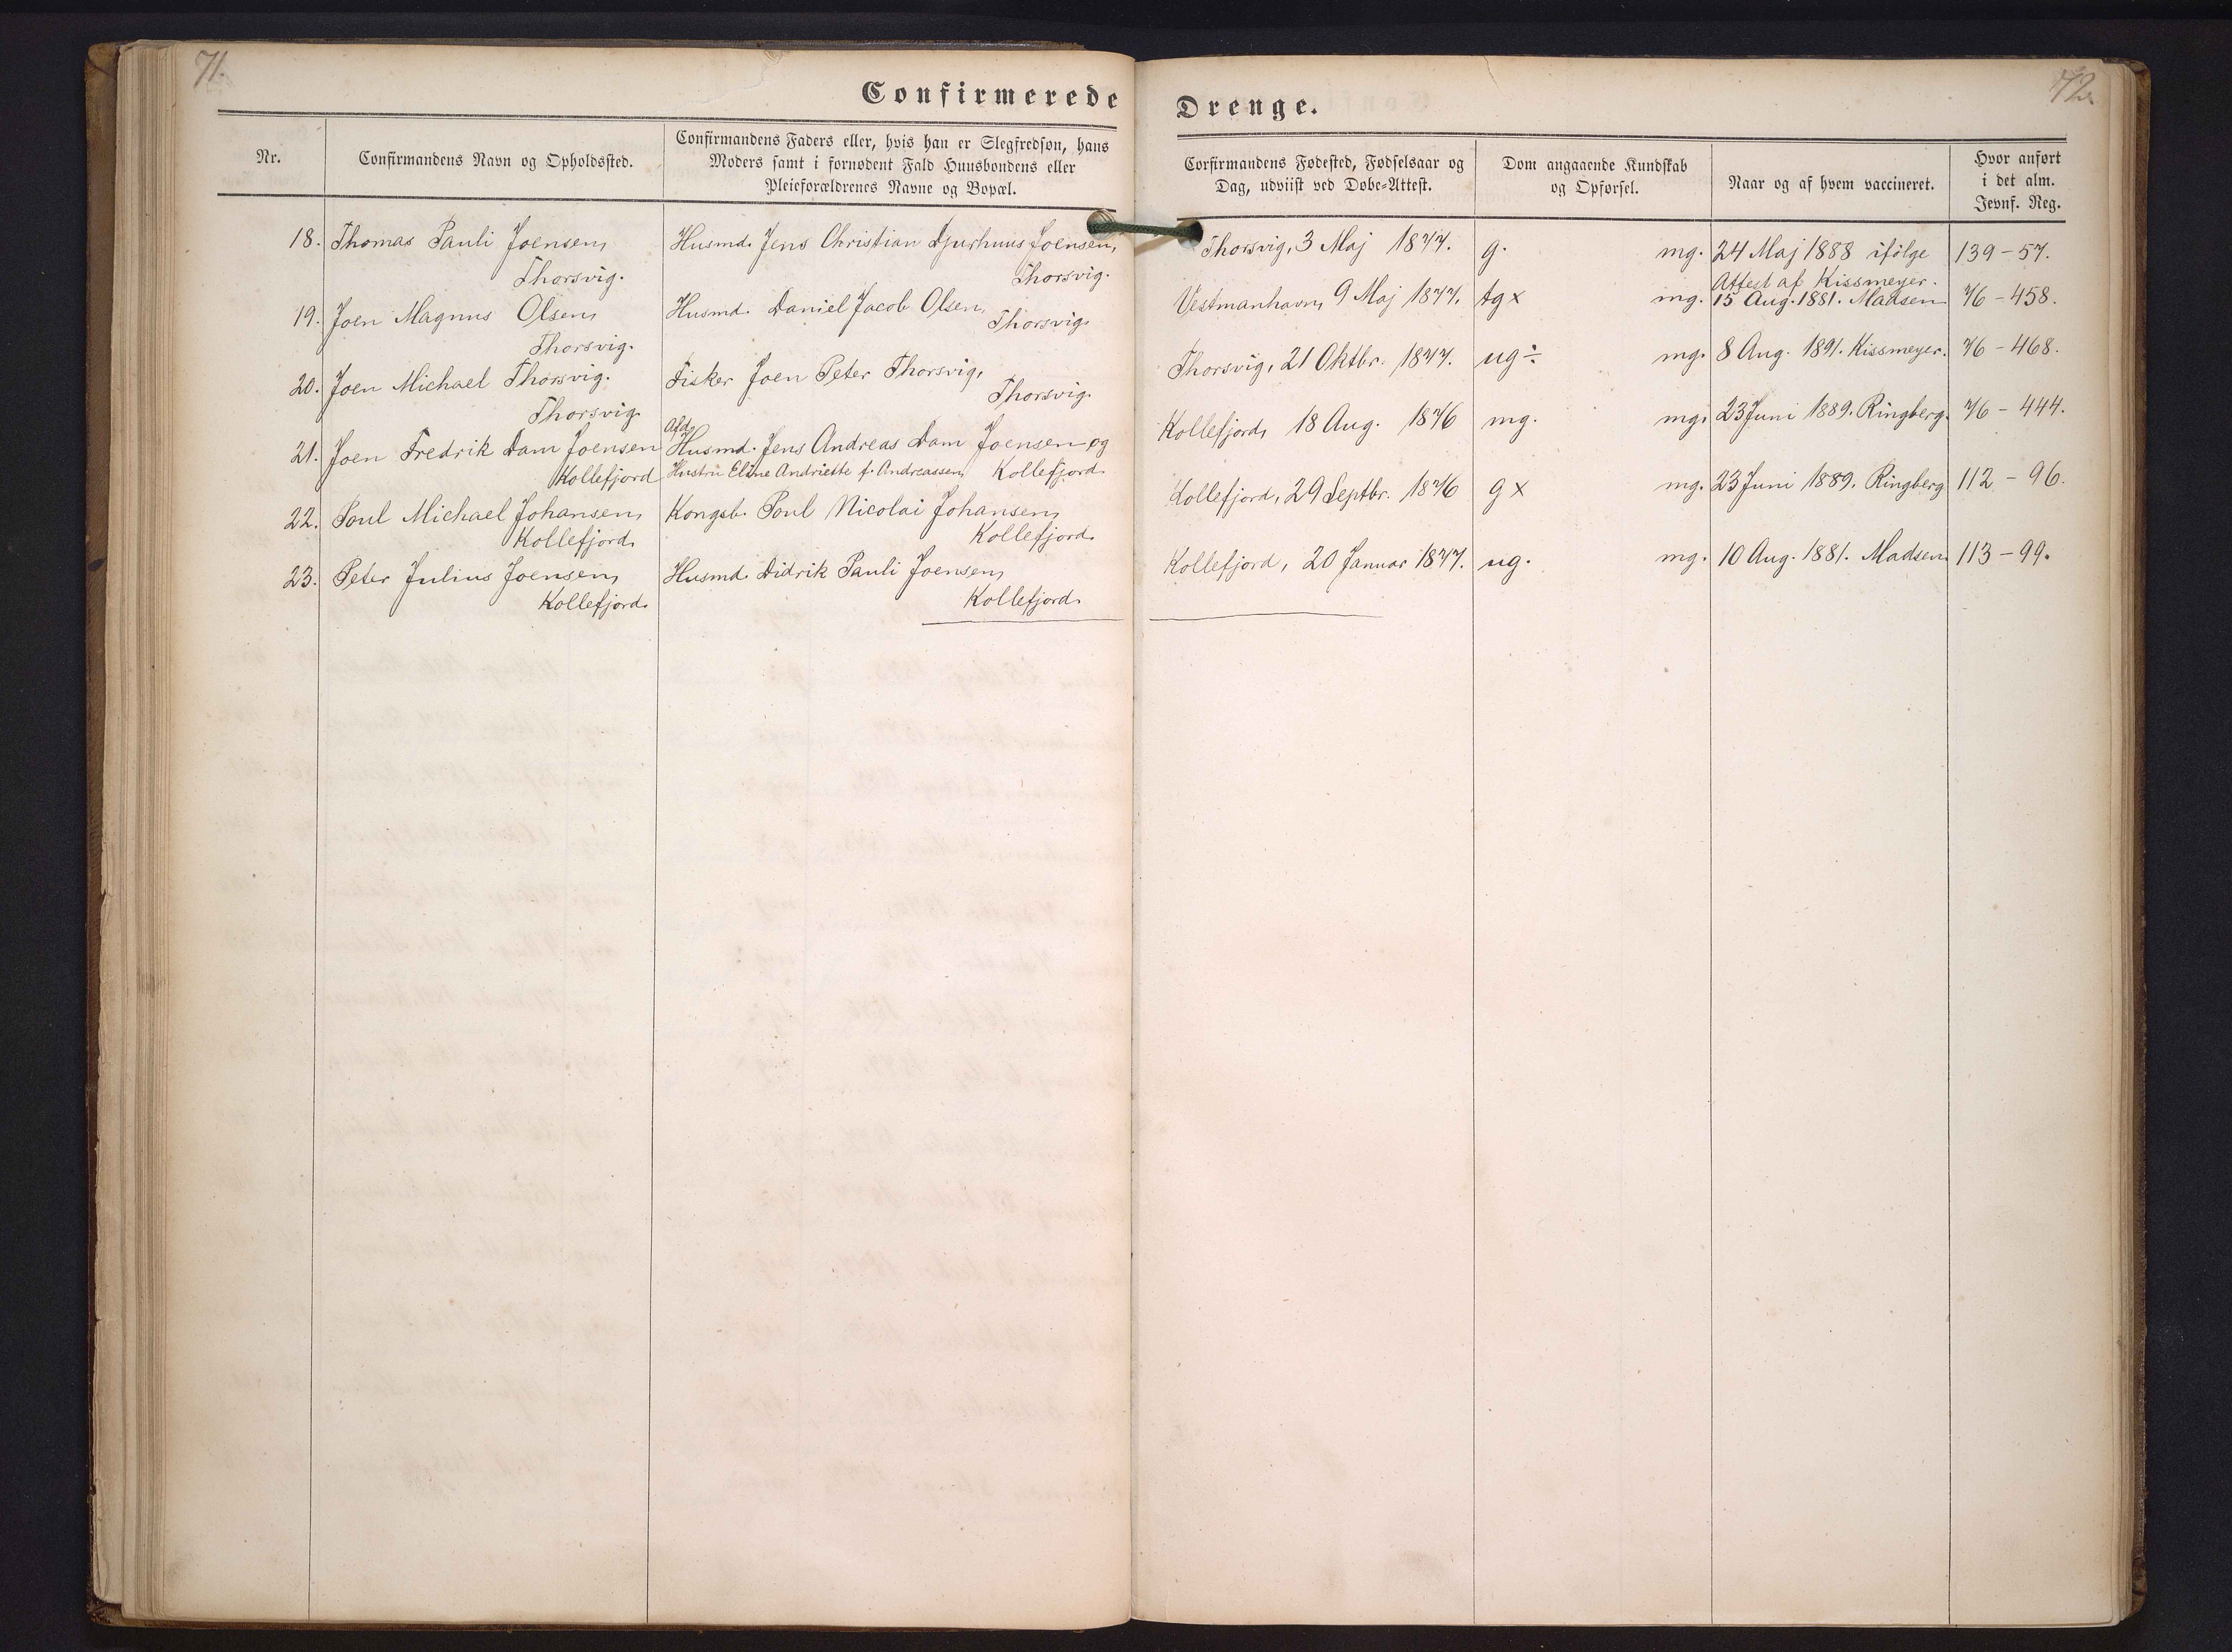 71.
72.
Confirmerede Drenge.
Nr.
Confirmandens Navn og Opholdssted.
Confirmandens Faders eller, hvis han er Slegfredsøn, hans
Moders samt i fornødent Fald Huusbondens eller
Pleieforældrenes Navne og Bopæl.
Corfirmandens Fødested, Fødselsaar og
Dag, udviist ved Døbe-Attest.
Dom angaaende Kundskab
og Opførsel.
Naar og af hvem vaccineret.
Hvor anført
i det alm.
Jevnf. Reg.
18. Thomas Pauli Joensen, Husmd. Jens Christian Djurhuus Joensen, Thorsvig, 3 Maj 1877. g. mg. 24 Maj 1888 ifölge 139 - 57.
Thorsvig. Thorsvig. Attest af Kissmeyer.
19. Joen Magnus Olsen, Husmd. Daniel Jacob Olsen, Vestmanhavn, 9 Maj 1877. tg x mg. 15 Aug. 1881. Madsen 76 - 458.
Thorsvig. Thorsvig.
20. Joen Michael Thorsvig. Fisker Joen Peter Thorsvig, Thorsvig, 21 Oktbr. 1877. ug ÷ mg. 8 Aug. 1891. Kissmeyer. 76 - 468.
Thorsvig Thorsvig.
Afd.
21. Joen Fredrik Dam Joensen Husmd. Jens Andreas Dam Joensen og Kollefjord, 18 Aug. 1876 mg. mg. 23 Juni 1889. Ringberg. 76 - 444.
Kollefjord Hustru Eline Andriette f. Andreassen, Kollefjord.
22. Poul Michael Johansen, Kongsb. Poul Nicolai Johansen, Kollefjord, 29 Septbr. 1876 g x mg. 23 Juni 1889. Ringberg 112 - 96.
Kollefjord. Kollefjord.
23. Peter Julius Joensen, Husmd. Didrik Pauli Joensen, Kollefjord, 20 Januar 1877. ug. mg. 10 Aug. 1881. Madsen. 113 - 99.
Kollefjord. Kollefjord.